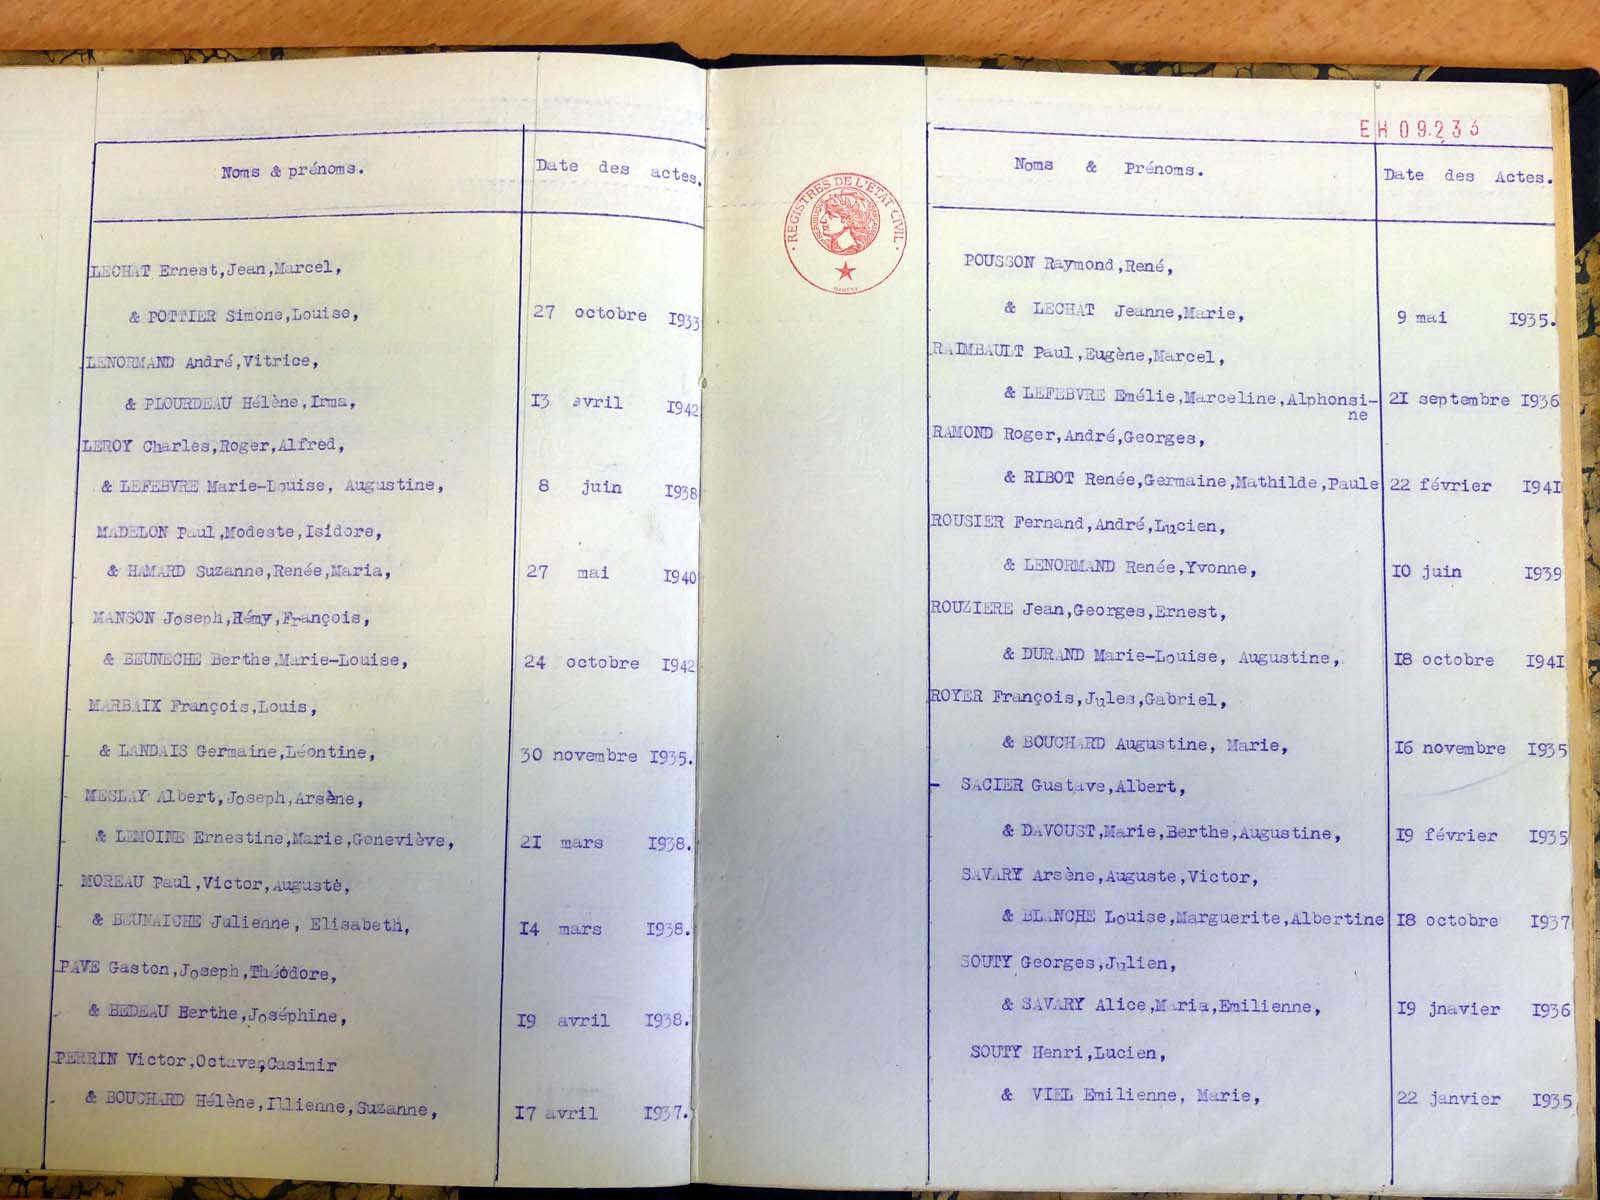 Noms & prénoms. Date des actes.
LECHAT Ernest,Jean,Marcel,
& POTTIER Simone,Louise, 27 octobre 1933
LENORMAND André,Vitrice,
& PLOURDEAU Hélène,Irma, 13 avril 1942
LEROY Charles,Roger,Alfred,
& LEFEBVRE Marie-Louise, Augustine, 8 juin 1938
MADELON Paul,Modeste,Isidore,
& HAMARD Suzanne,Renée,Maria, 27 mai 1940
MANSON Joseph,Rémy,François,
& BEUNECHE Berthe,Marie-Louise, 24 octobre 1942
MARBAIX François,Louis,
& LANDAIS Germaine,Léontine, 30 novembre 1935.
MESLAY Albert,Joseph,Arsène,
& LEMOINE Ernestine,Marie,Geneviève, 21 mars 1938.
MOREAU Paul,Victor,Auguste,
& BEUNAICHE Julienne, Elisabeth, 14 mars 1938.
PAVE Gaston,Joseph,Théodore,
& BEDEAU Berthe,Joséphine, 19 avril 1938.
PERRIN Victor,Octave,Casimir
& BOUCHARD Hélène,Illienne,Suzanne, 17 avril 1937.
REGISTRES DE L'ETAT CIVIL
EH09.233
Noms & Prénoms. Date des Actes.
POUSSON Raymond,René,
& LECHAT Jeanne,Marie, 9 mai 1935.
RAIMBAULT Paul,Eugène,Marcel,
& LEFEBVRE Emélie,Marceline,Alphonsi- 21 septembre 1936
ne
RAMOND Roger,André,Georges,
& RIBOT Renée,Germaine,Mathilde,Paule 22 février 1941
ROUSIER Fernand,André,Lucien,
& LENORMAND Renée,Yvonne, 10 juin 1939
ROUZIERE Jean,Georges,Ernest,
& DURAND Marie-Louise, Augustine, 18 octobre 1941
ROYER François,Jules,Gabriel,
& BOUCHARD Augustine, Marie, 16 novembre 1935
- SACIER Gustave,Albert,
& DAVOUST,Marie,Berthe,Augustine, 19 février 1935
SAVARY Arsène,Auguste,Victor,
& BLANCHE Louise,Marguerite,Albertine 18 octobre 1937
SOUTY Georges,Julien,
& SAVARY Alice,Maria,Emilienne, 19 jnavier 1936
SOUTY Henri,Lucien,
& VIEL Emilienne, Marie, 22 janvier 1935